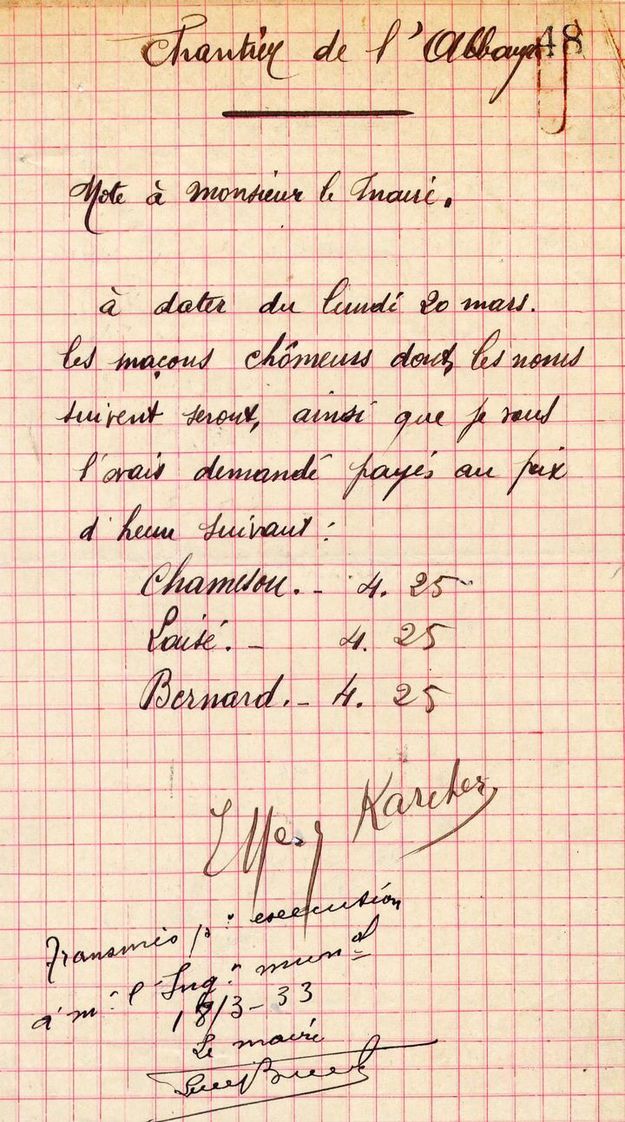 Chantier de l'Abbaye 48
Note à monsieur le maire.
à dater du lundi 20 mars.
les maçons chômeurs dont, les noms
suivent seront, ainsi que je vous
l'avais demandé payés au prix
d'heure suivant :
Chameson. - 4. 25
Loisé. - 4. 25
Bernard. - 4. 25
Karcher
Transmis pr exécution
à mr l'Ingr munal
18/3-33
Le maire